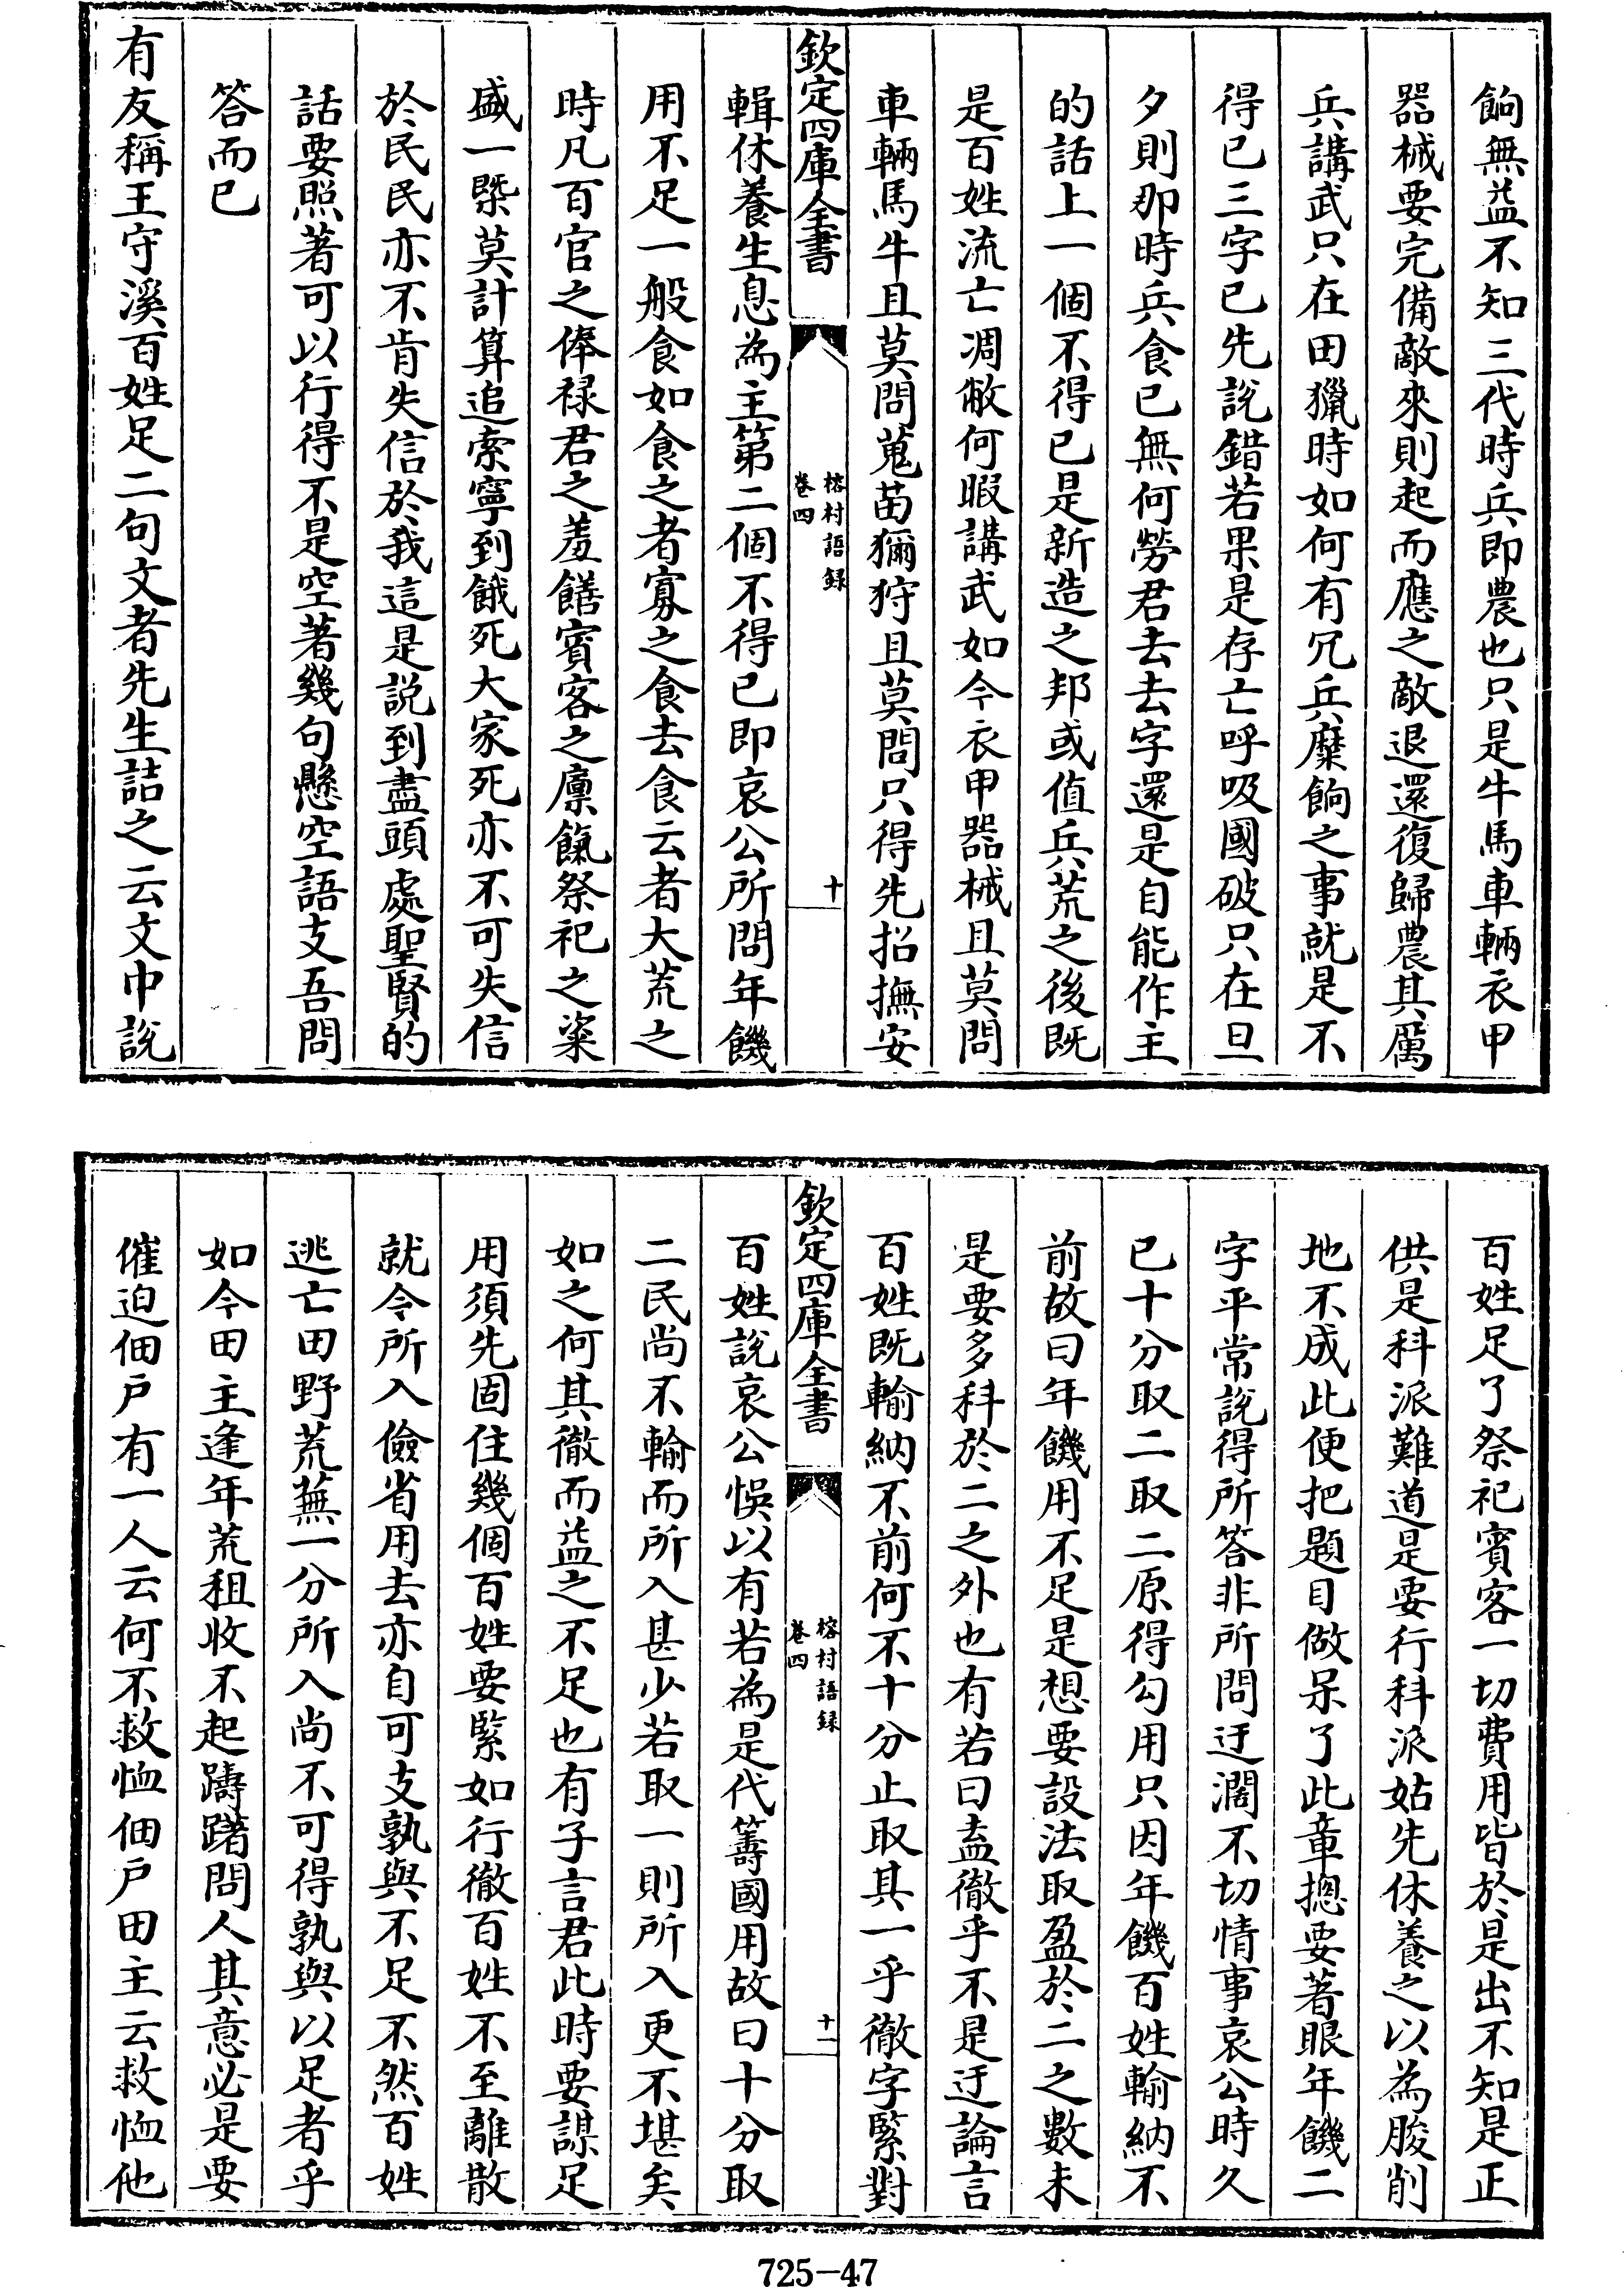 餉無益不知三代時兵即農也只是牛馬車輛衣甲
器械要完備敵來則起而應之敵退還復歸農其厲
兵講武只在田獵時如何有冗兵糜餉之事就是不
得已三字已先說錯若果是存亡呼吸國破只在旦
夕則那時兵食已無何勞君去去字還是自能作主
的話上一個不得已是新造之邦或值兵荒之後既
是百姓流亡凋敝何暇講武如今衣甲器械且莫問
車輛馬牛且莫問蒐苗獮狩且莫問只得先招撫安
欽定四庫全書
榕村語錄
卷四
十
輯休養生息為主第二個不得已即哀公所問年饑
用不足一般食如食之者寡之食去食云者大荒之
時凡百官之俸祿君之羞饍賓客之廪餼祭祀之粢
盛一槩莫計算追索寧到餓死大家死亦不可失信
於民民亦不肯失信於我這是説到盡頭處聖賢的
話要照著可以行得不是空著幾句懸空語支吾問
答而已
有友稱王守溪百姓足二句文者先生詰之云文中說
百姓足了祭祀賓客一切費用皆於是出不知是正
供是科派難道是要行科派姑先休養之以為朘削
地不成此便把題目做呆了此章摠要著眼年饑二
字平常說得所答非所問迂濶不切情事哀公時久
已十分取二取二原得勾用只因年饑百姓輸納不
前故曰年饑用不足是想要設法取盈於二之數未
是要多科於二之外也有若曰盍徹乎不是迂論言
百姓既輸納不前何不十分止取其一乎徹字緊對
欽定四庫全書
榕村語錄
卷四
十一
百姓說哀公悞以有若為是代籌國用故曰十分取
二民尚不輸而所入甚少若取一則所入更不堪矣
如之何其徹而益之不足也有子言君此時要謀足
用須先固住幾個百姓要緊如行徹百姓不至離散
就令所入儉省用去亦自可支孰與不足不然百姓
逃亡田野荒蕪一分所入尚不可得孰與以足者乎
如今田主逢年荒租收不起躊躇問人其意必是要
催迫佃戶有一人云何不救恤佃戶田主云救恤他
725-47